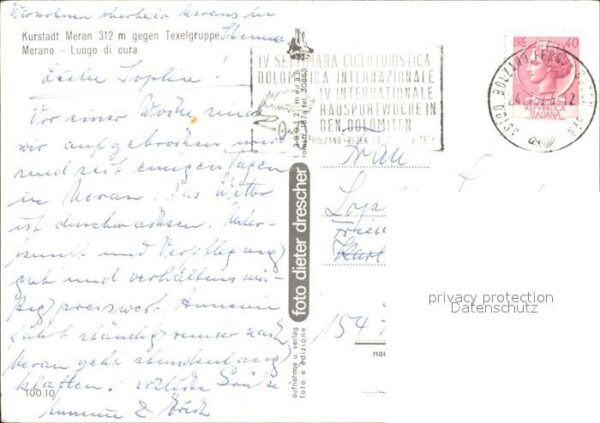 Wir wohnen oberhalb Merans in
Schenna
Kurstadt Meran 312 m gegen Texelgruppe
Merano - Luogo di cura
Liebe Sophie!
Vor einer Woche sind
wir aufgebrochen und
sind seit einigen Tagen
in Meran. Das Wetter
ist durchwachsen. Unter-
kunft und Verpflegung
gut und verhältnis mä-
ßig preiswert. Annemie
fährt ständig runter nach
Meran geht stundenlang
klaffen! Herzliche Grüße
Annemie & Erich
100.10
IV SETTIMANA CICLOTURISTICA
DOLOMITICA INTERNAZIONALE
IV INTERNATIONALE
RADSPORTWOCHE IN
DEN DOLOMITEN
LIRE 40
ITALIANA
39100 BOLZANO FERROVIA
foto dieter drescher
39012 meran
aufnahme u. verlag
foto e edizione
Frau
privacy protection
Datenschutz